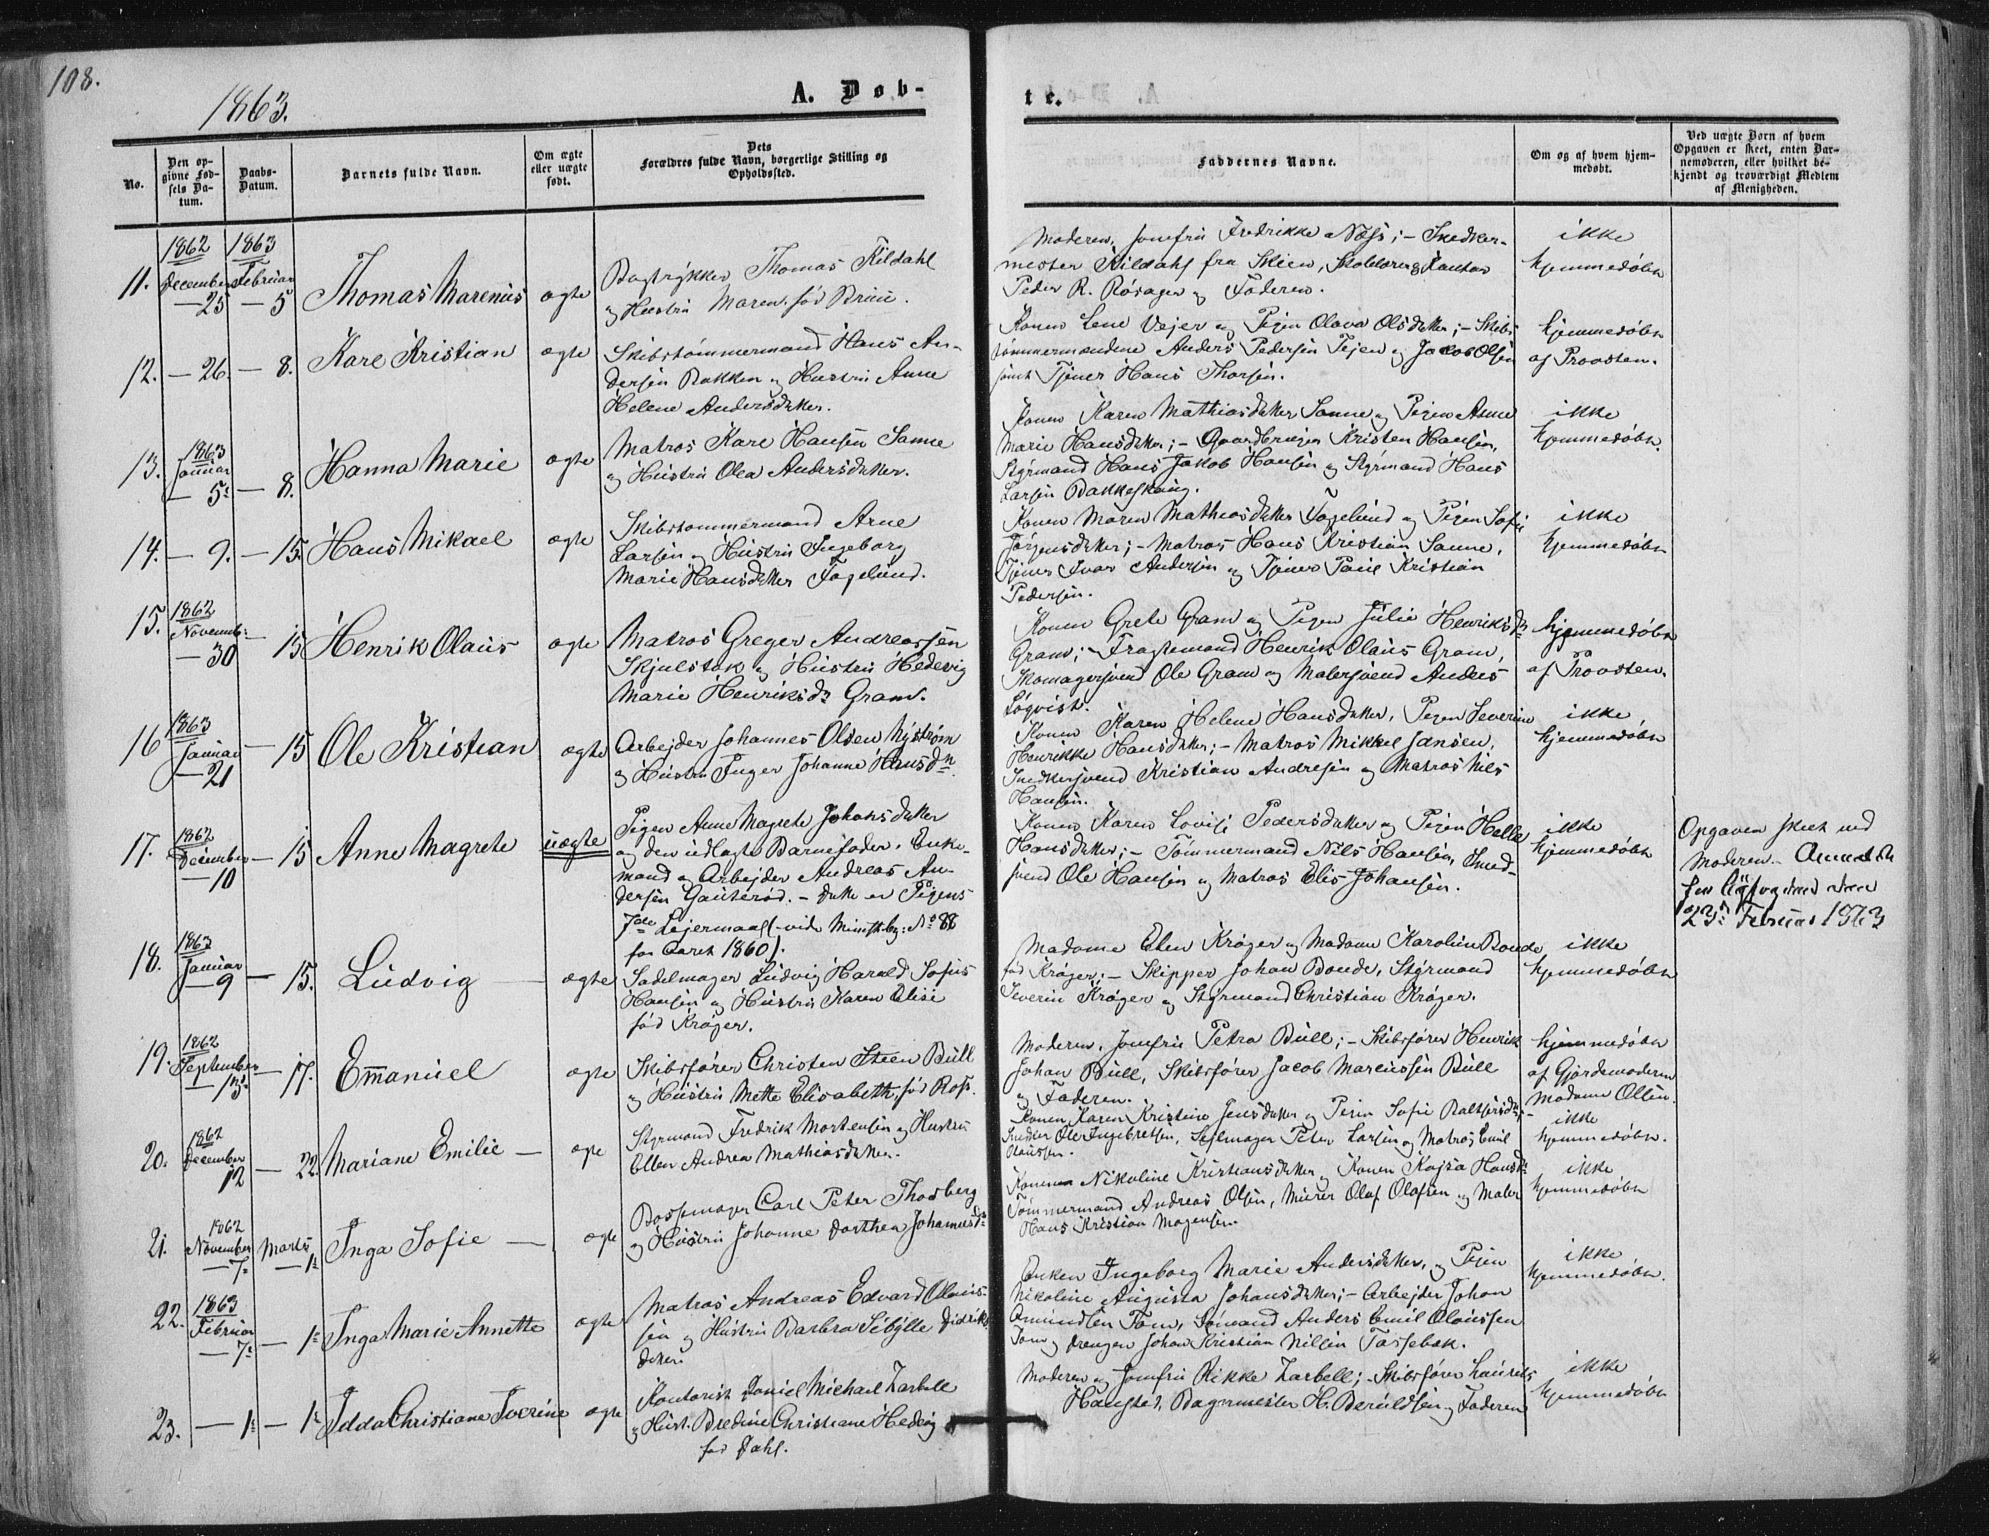 108.
1863.
A. Døb-
te.
No.
Den op-
givne Fød-
sels Da-
tum.
Daabs-
Datum.
Barnets fulde Navn.
Om ægte
eller uægte
født.
Dets
Forældres fulde Navn, borgerlige Stilling og
Opholdssted.
Faddernes Navne.
Om og af hvem hjem-
medøbt.
Ved uægte Børn af hvem
Opgaven er skeet, enten Bar-
nemoderen, eller hvilket be-
kjendt og troværdigt Medlem
af Menigheden.
1862 1863
11. December Februar
— 25 — 5 Thomas Marenius ægte
Bogtrykker Thomas Kildahl
og Hustru Maren, fød Bruu.
Moderen, Jomfru Fredrikke Næss; – Snedker-
mester Kildahl fra Skien, Skolelærer og Kantor
Peder R. Røsager og Faderen.
ikke
hjemmedøbt
12. — 26. — 8. Karl Kristian ægte
Skibstømmermand Hans An-
dersen Bakken og Hustru Anne
Helene Andersdatter.
Konen Lene Vejer og Pigen Olava Olsdatter; – Skibs
tømmermændene Anders Pedersen Tejen og Jacob Olsen
samt Tjener Hans Thorsen.
hjemmedøbt
af Provsten.
1863
13. Januar
— 5: — 8. Hanna Marie ægte
Matros Karl Hansen Sanne
og Hustru Olea Andersdatter.
Konen Karen Mathiasdatter Sanne og Pigen Anne
Marie Hansdatter; – Gaardbruger Kristen Hansen,
Styrmand Hans Jakob Hansen og Styrmand Hans
Larsen Bakkeskaug.
ikke
hjemmedøbt.
14. — 9. — 15. Hans Mikael ægte
Skibstømmermand Arne
Larsen og Hustru Ingeborg
Marie Hansdatter Fagelund.
Konen Maren Mathiasdatter Fagelund og Pigen Sofie
Jørgensdatter; – Matros Hans Kristian Sanne,
Tjener Ivar Andersen og Tjener Paul Kristian
Pedersen.
ikke
hjemmedøbt
15. 1862
Novemb:
— 30 15 Henrik Olaus ægte
Matros Greger Andreassen
Skjulstak og Hustru Hedevig
Marie Henriksdr Gram.
Konen Grete Gram og Pigen Julie Henriksdr
Gram; – Fragtemand Henrik Olaus Gram,
Skomagersvend Ole Gram og Malersvend Anders
Løqvist.
hjemmedøbt
af Provsten.
16 1863
Januar
— 21 — 15 Ole Kristian ægte
Arbejder Johannes Olsen Nystrøm
og Hustru Inger Johanne Hansdtr
Konen Karen Helene Hansdatter, Pigen Severine
Henrikke Hansdatter; – Matros Mikkel Jansen,
Snedkersvend Kristian Andresen og Matros Nils
Hansen.
ikke
hjemmedøbt
17. 1862
December
— 10 — 15 Anne Magrete uægte
Pigen Anne Magrete Johansdatter
og den udlagte Barnefader, Enke-
mand og Arbejder Andreas An-
dersen Gauterød. – Dette er Pigens
7de Lejermaal (– vide Ministbg: No 88
for Aaret 1860).
Konen Karen Lovise Pedersdatter og Pigen Helle
Hansdatter; – Tømmermand Nils Hansen, Smed-
svend Ole Hansen og Matros Elis Johansen.
ikke
hjemmedøbt
Opgaven skeet ved
Moderen –
23. Februar 1863
18. 1863
Januar
— 9 — 15. Ludvig — ægte
Sadelmager Ludvig Harald Sofus
Hansen og Hustru Karen Elise
fød Krøger.
Madame Elen Krøger og Madame Karoline Bonde
fød Krøger; – Skipper Johan Bonde, Styrmand
Severin Krøger og Styrmand Christian Krøger.
ikke
hjemmedøbt
19. 1862
September
— 13. — 17. Emanuel ægte
Skibsfører Christen Steen Bull
og Hustru Mette Elisabeth, fød Ross.
Moderen, Jomfru Petra Bull; – Skibsfører Henrik
Johan Bull, Skibsfører Jacob Marcussen Bull
og Faderen.
hjemmedøbt
af Gjordemoderen
Madame Olsen.
20. 1862
December
12 — 22 Mariane Emilie — ægte
Styrmand Fredrik Mortensen og Hustru
Ellen Andrea Mathiasdatter.
Konen Karen Kristine Jensdatter og Pigen Sofie Baltzersdr; –
Snedker Ole Ingebretsen, Seilmager Peter Larsen og Matros Emil
Olaussen.
ikke
hjemmedøbt.
21. 1862
November Marts
— 7: — 1: Inga Sofie — ægte
Bøssemager Carl Peter Thorberg
og Hustru Johanne Dorthea Johannesdr
Konen Nikoline Kristiansdatter og Konen Kajsa Hansdr
Tømmermand Andreas Olsen, Murer Olof Olofsen og Maler
Hans Kristian Mogensen.
ikke
hjemmedøbt
22. 1863
Februar
— 7: — 1: Inga Marie Annette ægte
Matros Andreas Edvard Olaus-
sen og Hustru Barbra Sibylle Didriks
datter.
Enken Ingeborg Marie Andersdatter, og Pigen
Nikoline Augusta Johansdatter; – Arbejder Johan
Amundsen Tom, Sømand Anders Emil Olaussen
Tom og Drengen Johan Kristian Nilsen Tassebæk.
ikke
hjemmedøbt.
23. — 1: — 1: Idda Christiane Tverine ægte
Kontorist Daniel Michael Zarbell
og Hust. Bredine Christiane Hedvig
fød Dahl.
Moderen og Jomfru Rikke Zarbell; – Skibsfører Laurits
Hansted, Bagermester H. Beruldsen og Faderen
ikke
hjemmedøbt